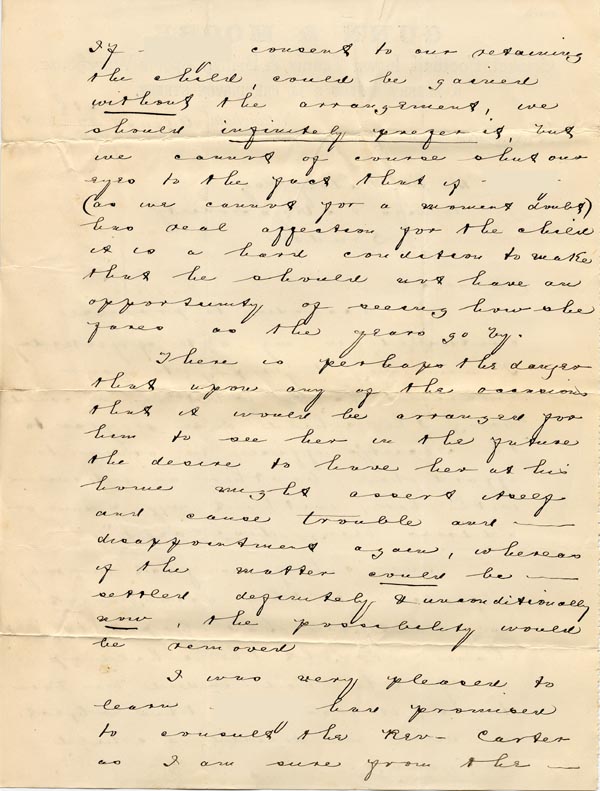 If - " consent to our retaining
the child, could be gained
without the arrangement, we
should infinitely prefer it, but
we cannot of course shut our
eyes to the fact that if -
(as we cannot for a moment doubt)
has real affection for the child
it is a hard condition to make
that he should not have an
opportunity of seeing how she
fares as the years go by.
There is perhaps the danger
that upon any of the occasions
that it would be arranged for
him to see her in the future
the desire to have her at his
home might assert itself
and cause trouble and —
disappointment again, whereas
if the matter could be —
settled definitely & unconditionally
now, the possibility would
be removed
I was very pleased to
learn " had promised
to consult the Rev- Carter
as I am sure from the —